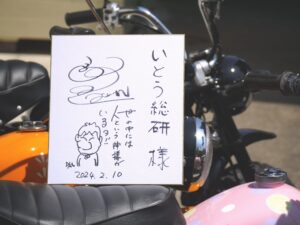 いとう総研 様
世の中には
人という神様が
いるるぞ
2024.2.10